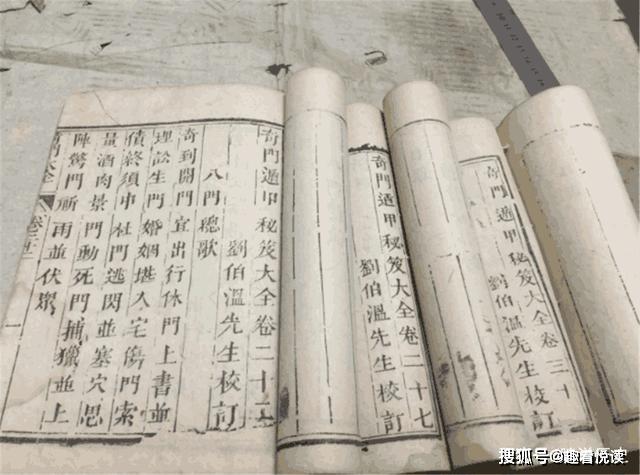 奇門遁甲秘笈大全卷三十
劉伯溫先生校訂
奇門遁甲秘笈大全卷二十七
劉伯溫先生校訂
奇門遁甲秘笈大全卷二十二
劉伯溫先生校訂
八門總歌
奇到開門宜出行休門上書並
理訟生門婚姻堪入宅傷門索
債終須中杜門逃閃並塞穴思
量酒肉景門動死門捕獵並上
陣驚門再並伏眾
門大全
一
搜狐号@趣着悦读